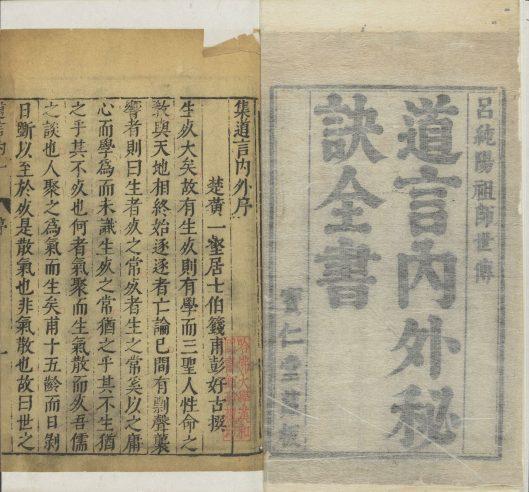 呂純陽祖師世傳
道言內外秘
訣全書
集道言內外序
楚黃一壑居士伯籛甫彭好古撰
生死大矣故有生死則有學而三聖人性命之
教與天地相終始逐逐者亡論已間有剽聲襲
響者則曰生者死之常死者生之常奚以之庸
心而學為而未識生死之常猶之乎其不生猶
之乎其不死也何者氣聚而生氣散而死吾儒
之談也人聚之為氣而生矣甫十五齡而日剝
日斵以至於死是散氣也非氣散也故曰世之